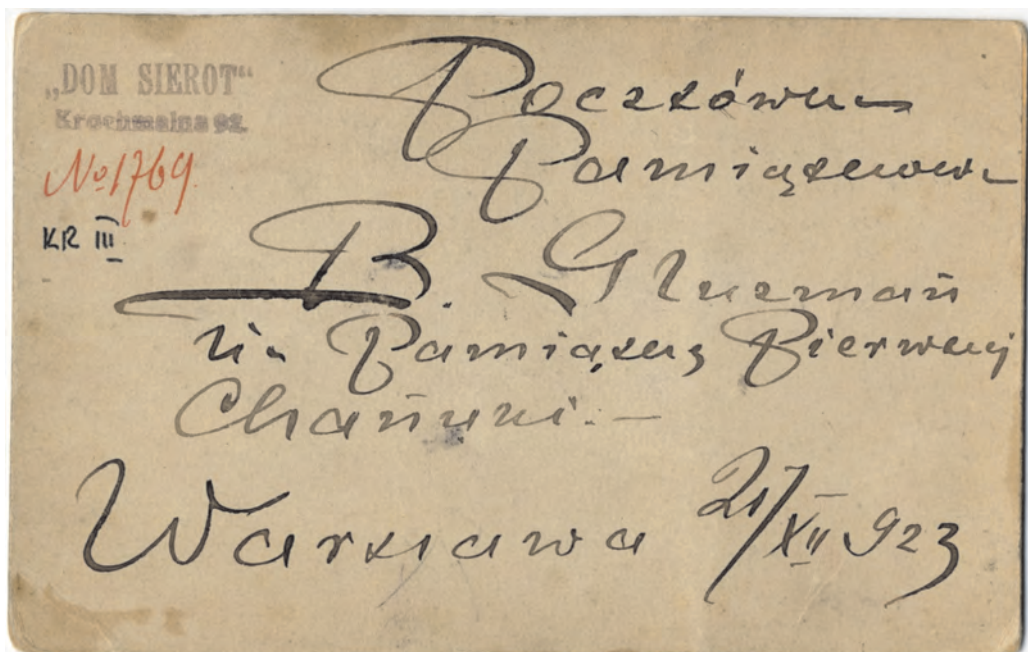 „DOM SIEROT“
Krochmalna 92.
No 1769.
KR III
Pocztówka
Pamiątkowa
B. Gluzman
na Pamiątkę Pierwszej
Chanuki. —
Warszawa 21/XII 923